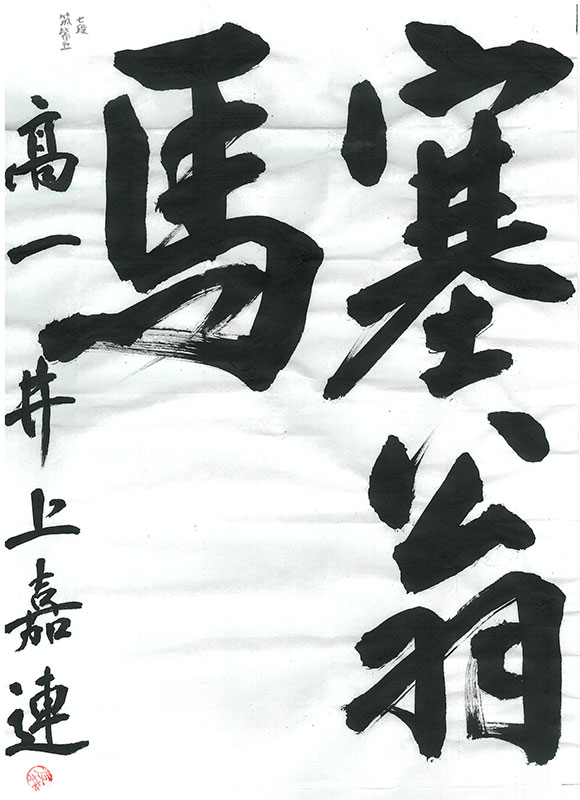 塞翁
馬
七段
筑紫丘
高一 井上嘉連